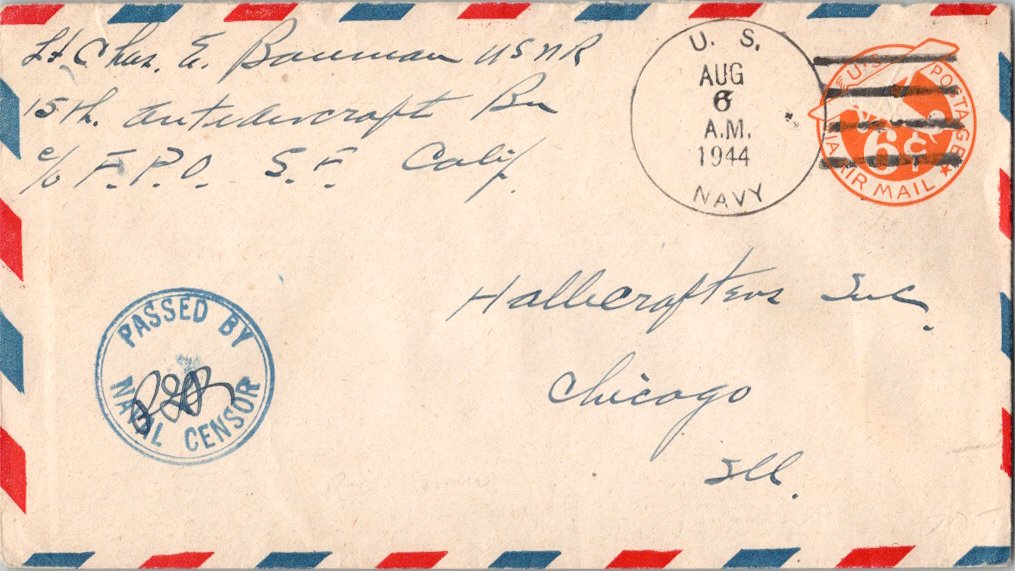 Lt. Chas. E. Bauman USNR
15th. Antiaircraft Bn
c/o F.P.O. S.F. Calif.
U. S.
AUG
6
A.M.
1944
NAVY
U.S. POSTAGE
6¢
VIA AIR MAIL
Hallicrafters Inc.
Chicago
Ill.
PASSED BY
NAVAL CENSOR